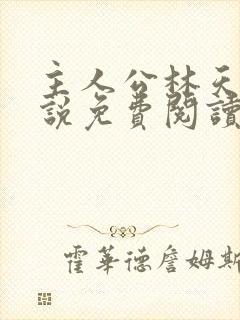 主人公林天
說免費閱讀
霍華德詹姆斯